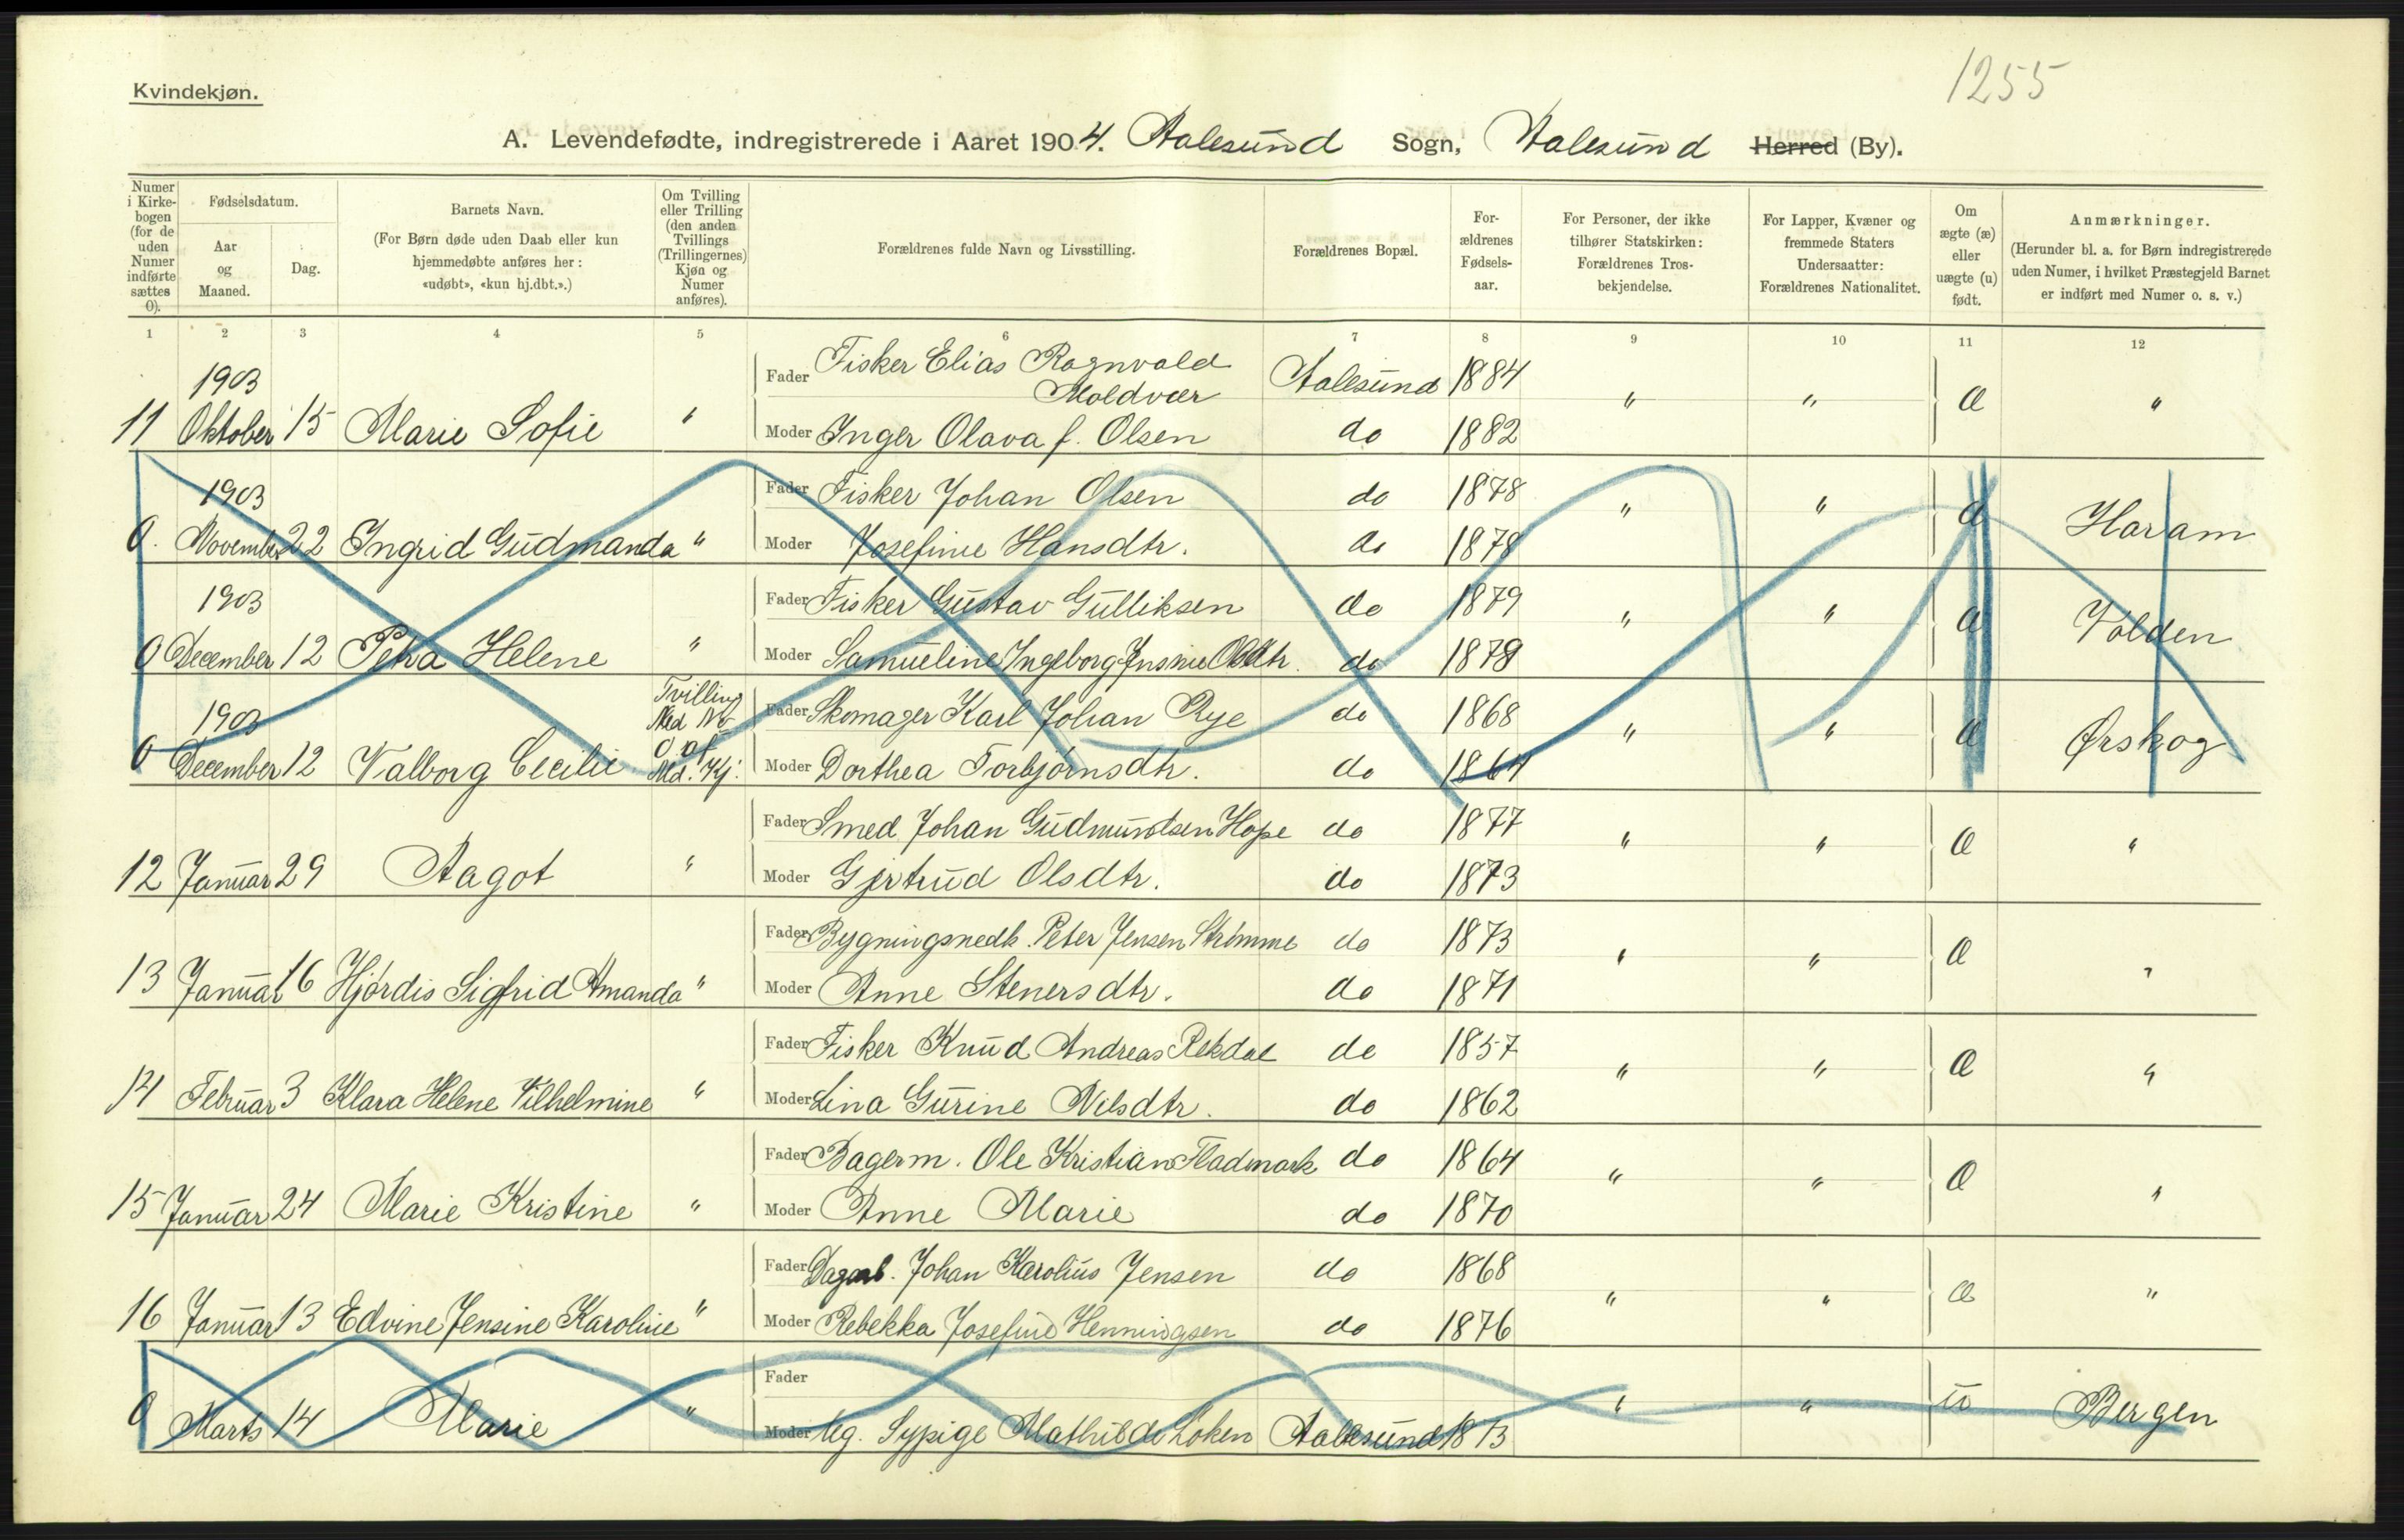 1255
Kvindekjøn.
A. Levendefødte, indregistrerede i Aaret 1904. Aalesund Sogn, Aalesund Herred (By).
Numer i Kirkebogen (for de uden Numer indførte sættes 0).
Fødselsdatum.
Aar og Maaned.
Dag.
Barnets Navn.
(For Børn døde uden Daab eller kun hjemmedøbte anføres her: «udøbt», «kun hj.dbt.».)
Om Tvilling eller Trilling (den anden Tvillings (Trillingernes) Kjøn og Numer anføres).
Forældrenes fulde Navn og Livsstilling.
Forældrenes Bopæl.
Forældrenes Fødselsaar.
For Personer, der ikke tilhører Statskirken: Forældrenes Trosbekjendelse.
For Lapper, Kvæner og fremmede Staters Undersaatter: Forældrenes Nationalitet.
Om ægte (æ) eller uægte (u) født.
Anmærkninger.
(Herunder bl. a. for Børn indregistrerede uden Numer, i hvilket Præstegjeld Barnet er indført med Numer o. s. v.)
1 2 3 4 5 6 7 8 9 10 11 12
1903
Fader Fisker Elias Ragnvald Moldvær Aalesund 1884 " " Æ "
11 Oktober 15 Marie Sofie " Moder Inger Olava f. Olsen do 1882
1903
Fader Fisker Johan Olsen do 1878 " " Æ Haram
0. November 22 Ingrid Gudmanda " Moder Josefine Hansdtr. do 1878
1903
Fader Fisker Gustav Gulliksen do 1879 " " Æ Volden
0 December 12 Petra Helene " Moder Samueline Ingeborg do 1879
1903
Tvilling Med No 0 af Md. Kj.
Fader Skomager Karl Johan Rye do 1868 " " Æ Ørskog
0 December 12 Valborg Cecilie Moder Dorthea Torbjørnsdtr. do 1864
Fader Smed Johan Gudmundsen Hope do 1877 " " Æ "
12 Januar 29 Aagot " Moder Gjertrud Olsdtr. do 1873
Fader Bygningsnedk. Peter Jensen Strømme do 1873 " " Æ "
13 Januar 16 Hjørdis Sigfrid Amanda " Moder Anne Stenersdtr. do 1871
Fader Fisker Knud Andreas Rekdal do 1857 " " Æ "
14 Februar 3 Klara Helene Vilhelmine " Moder Lina Gurine Nilsdtr. do 1862
Fader Bagerm. Ole Kristian Fladmark do 1864 " " Æ "
15 Januar 24 Marie Kristine " Moder Anne Marie do 1870
Fader Dagarb. Johan Karolius Jensen do 1868 " " Æ "
16 Januar 13 Edvine Jensine Karoline " Moder Rebekka Josefine Henningsen do 1876
Fader
0 Marts 14 Marie " Moder Ug. Sypige Mathilde Løken Aalesund 1873 " " U Bergen